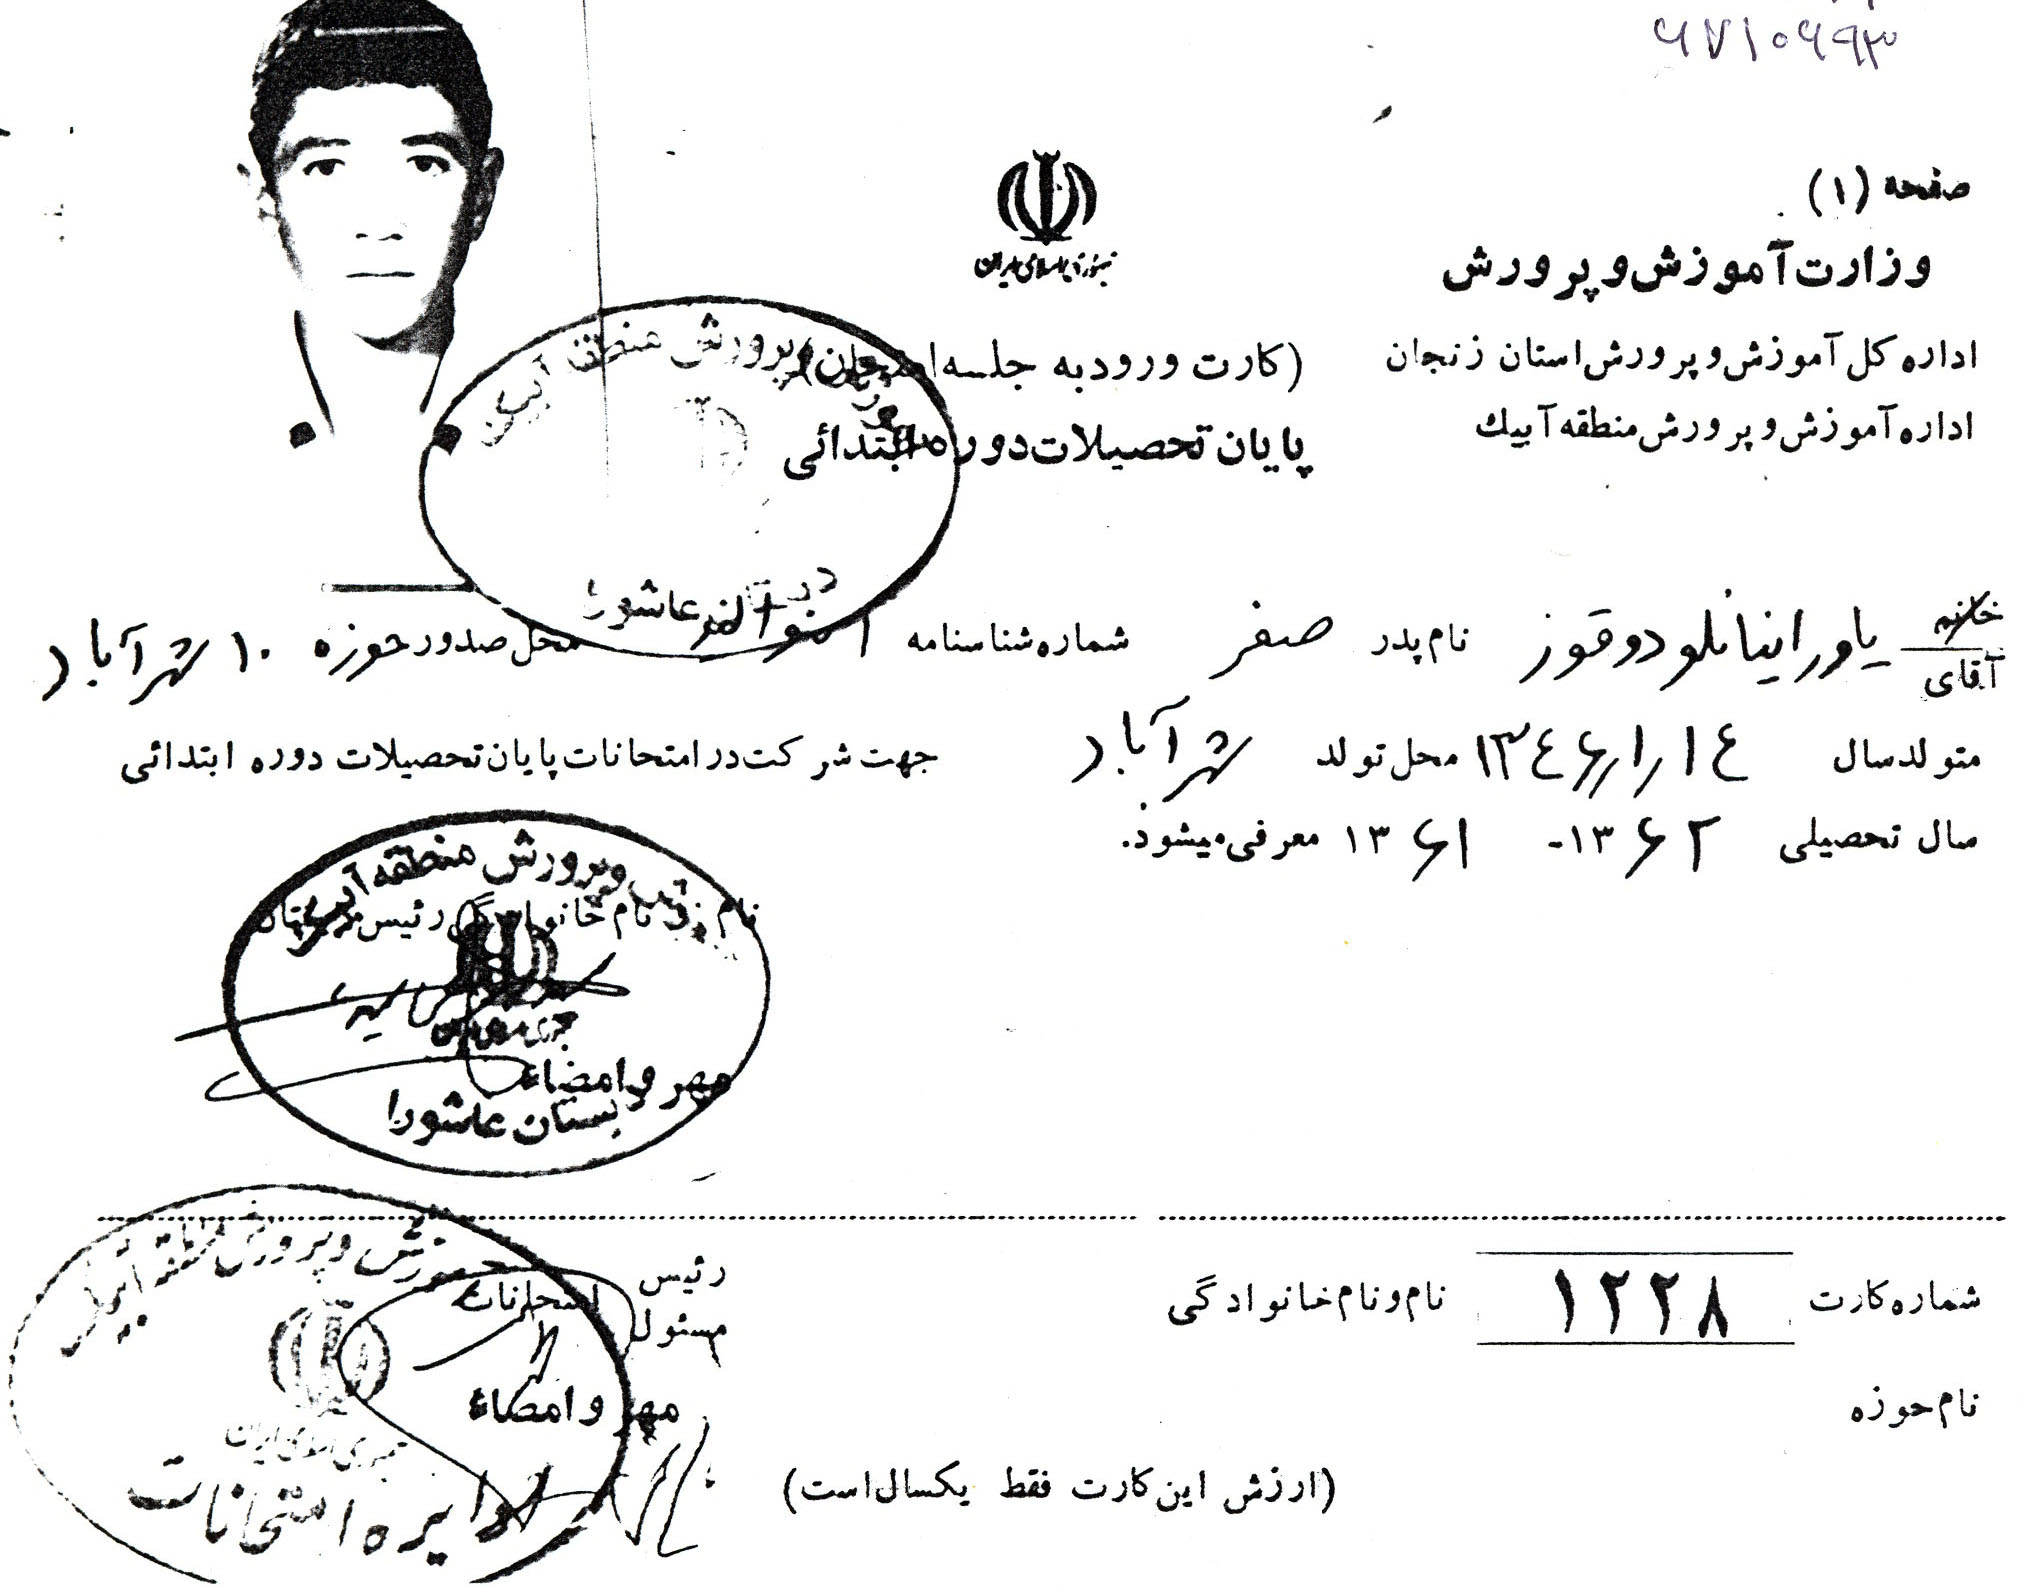 ۶۷۱۰۶۹۳
صفحه (۱)
جمهوری اسلامی ایران
وزارت آموزش و پرورش
اداره کل آموزش و پرورش استان زنجان
(کارت ورود به جلسه امتحان)
اداره آموزش و پرورش منطقه آبیك
پایان تحصیلات دوره ابتدائی
و پرورش منطقه آبیک
دبستان عاشورا
خانم
آقای
یاور اینانلو دوقوز نام پدر صفر شماره شناسنامه ۱ محل صدور حوزه ۱۰ شهرآباد
متولد سال ۱۳۴۶/۱/۱۴ محل تولد شهرآباد جهت شرکت در امتحانات پایان تحصیلات دوره ابتدائی
سال تحصیلی ۱۳۶۲ - ۱۳۶۱ معرفی میشود.
و پرورش منطقه آبیک
نام و نام خانوادگی رئیس دبستان
مهر و امضاء
دبستان عاشورا
شماره کارت ۱۲۲۸ نام و نام خانوادگی
رئیس
مسئول
امتحانات
نام حوزه
مهر و امضاء
(ارزش این کارت فقط یکسال است)
آموزش و پرورش منطقه آبیک
جمهوری اسلامی ایران
دایره امتحانات